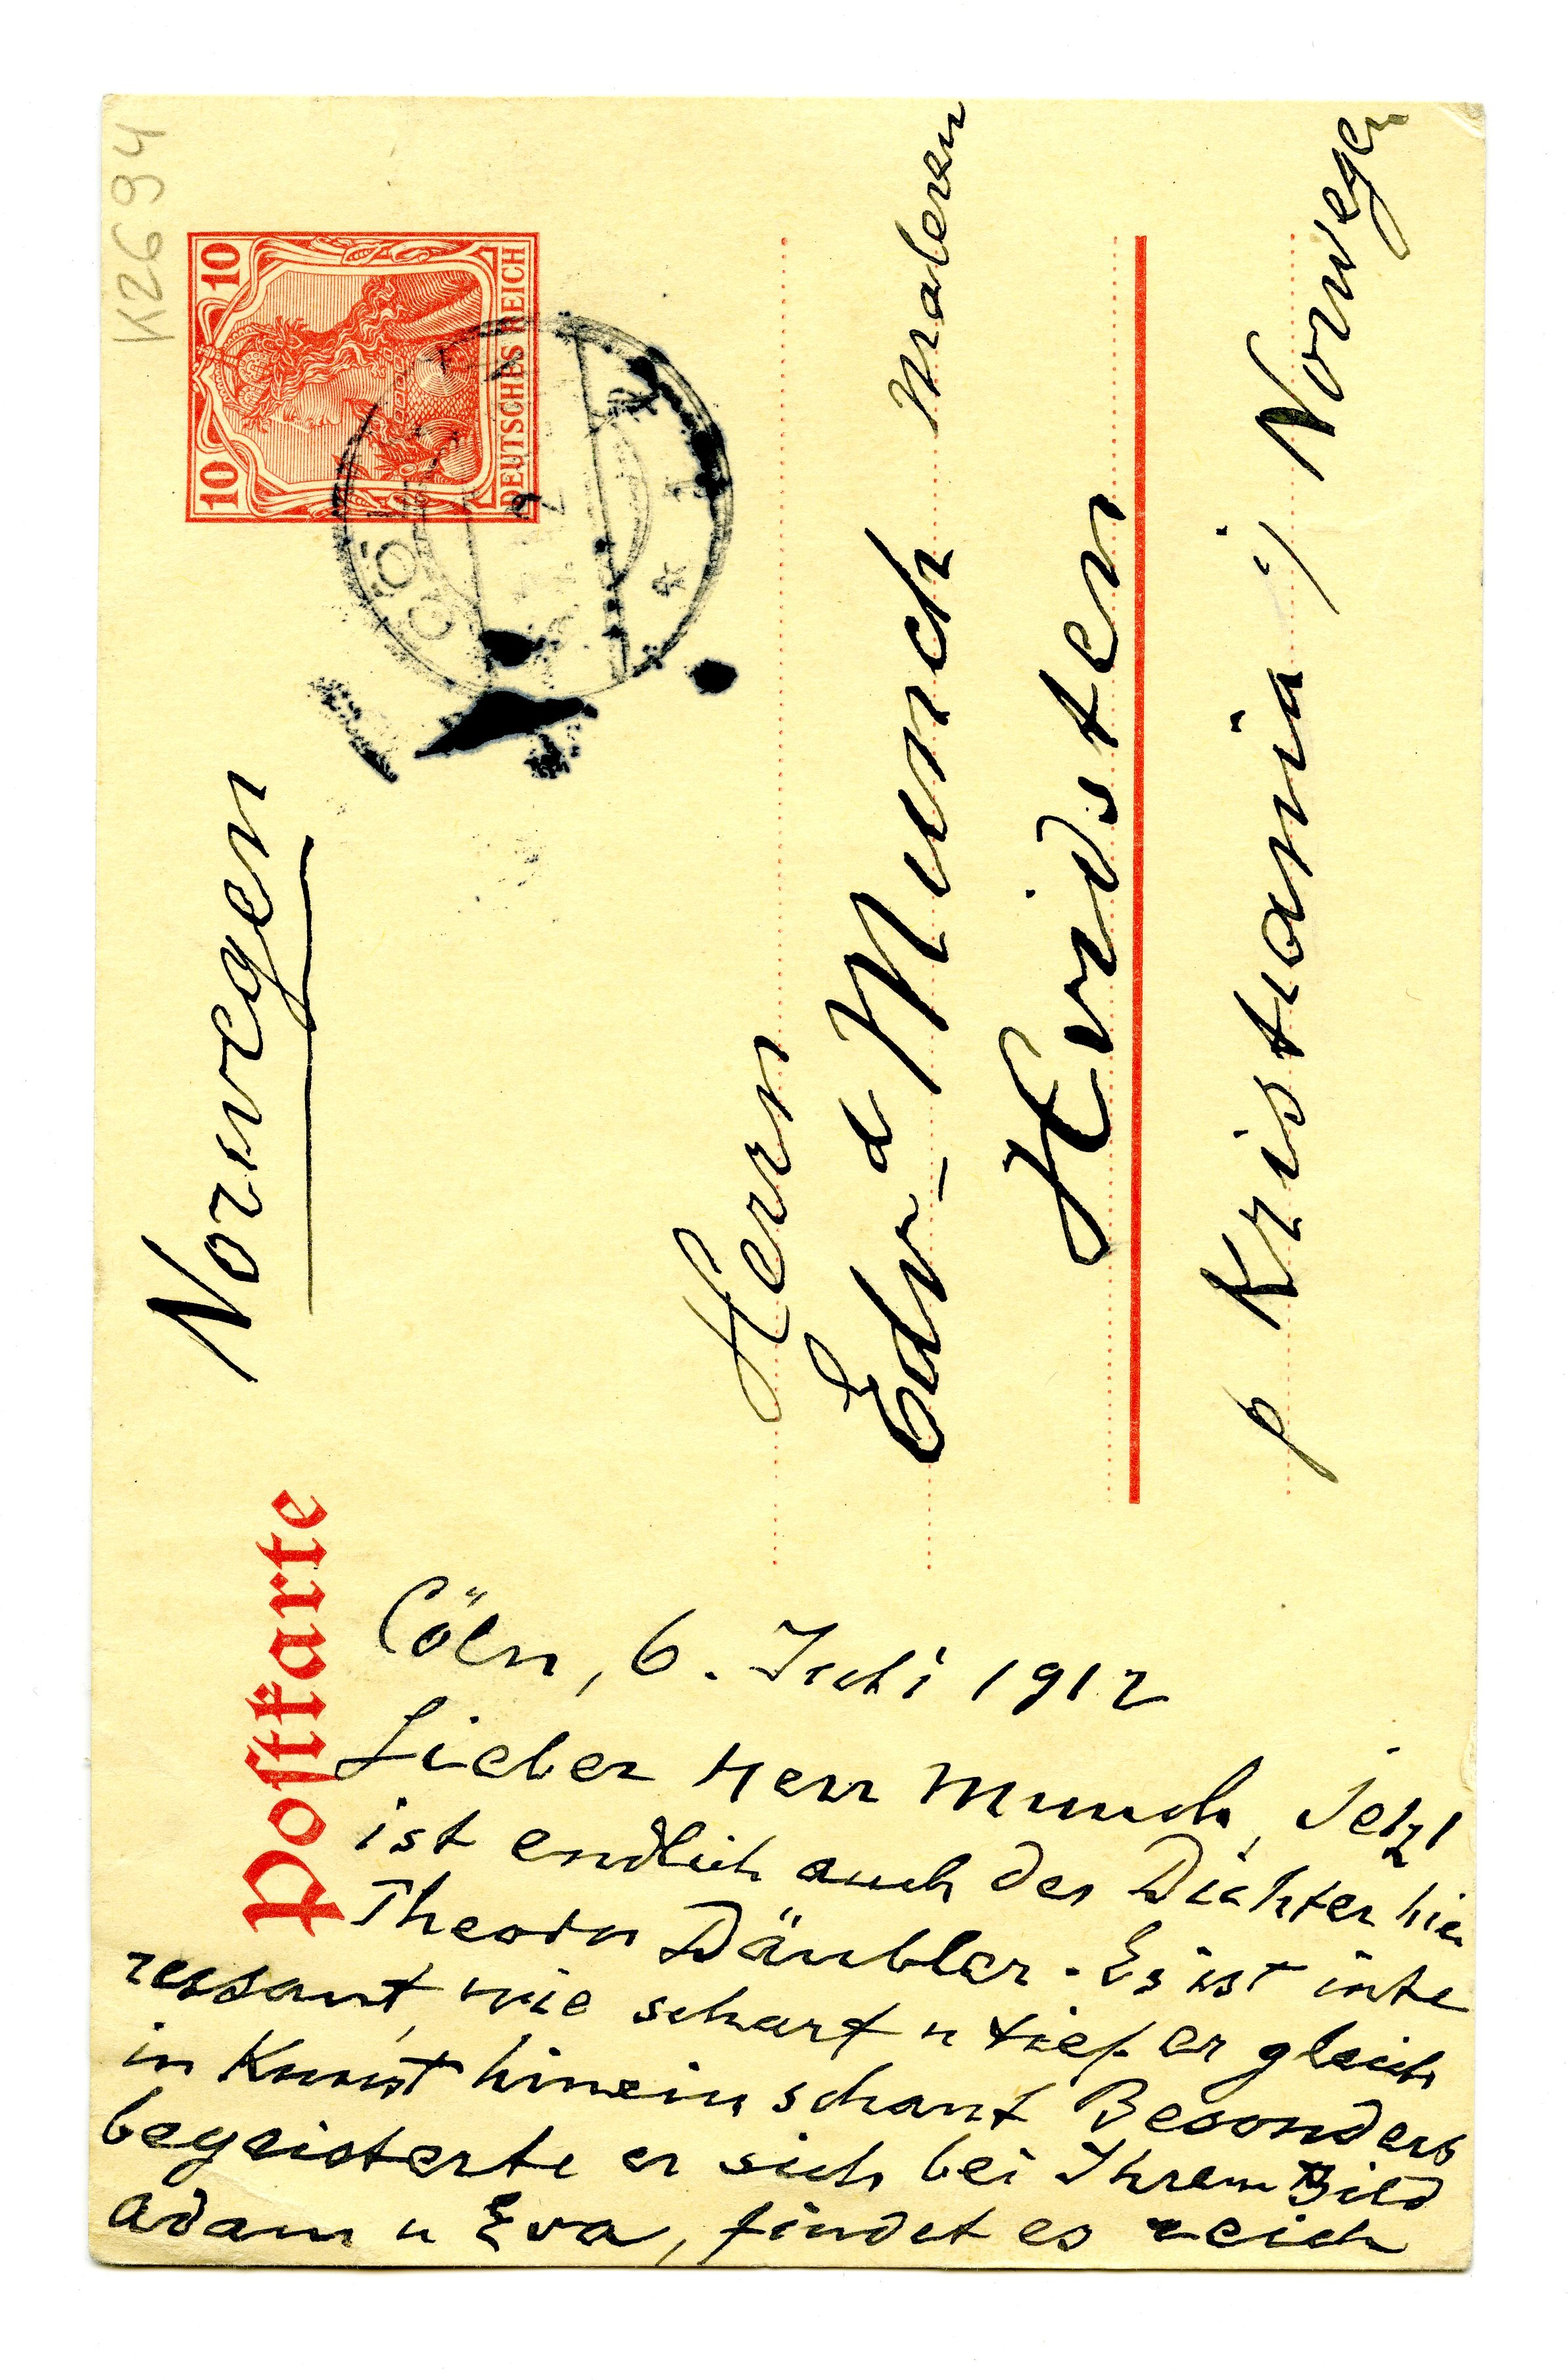 K2694
10 10
DEUTSCHES REICH
CÖLN
Postkarte
Norwegen
Herrn
Edv_d Munch Maleren
Hvidsten
p Kristiania i/ Norwegen
Cöln, 6. Juli 1912
Lieber Herr Munch, jetzt
ist endlich auch der Dichter hier
Theodor Däubler. Es ist inte
ressant, wie scharf u tief er gleich
in Kunst hineinschaut Besonders
begeisterte er sich bei Ihrem Bild
Adam u Eva, findet es reich